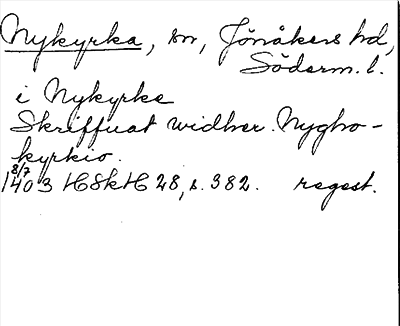 Nykyrka, sn, Jönåkers hd,
Söderm. l.
i Nykyrke
Skriffuat widher Nygho-
kyrkio.
8/7
1403 HSkH 28, s. 382. regest.